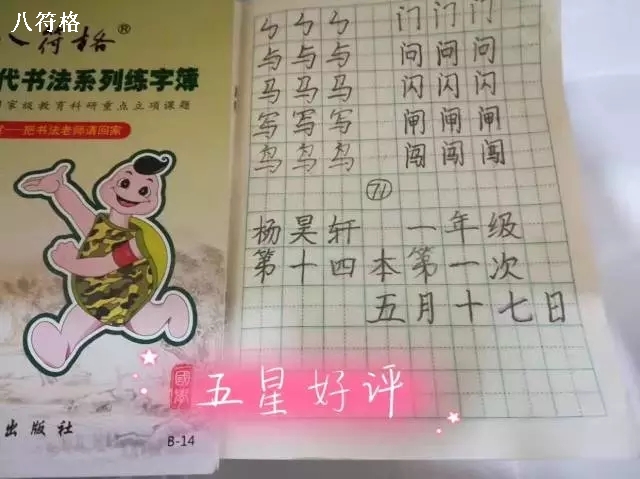 八符格
八符格®
代书法系列练字簿
国家级教育科研重点立项课题
把书法老师请回家
出版社
B-14
ㄅ ㄅ ㄅ 门 门 门
与 与 与 问 问 问
马 马 马 闪 闪 闪
写 写 写 闸 闸 闸
鸟 鸟 鸟 闯 闯 闯
71
杨昊轩 一年级
第十四本第一次
五月十七日
五星好评